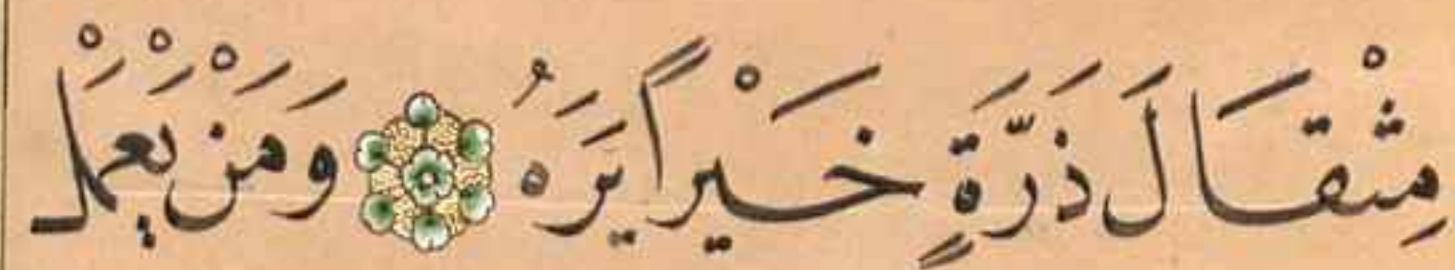 مِثْقَالَ ذَرَّةٍ خَيْراً يَرَهُ وَمَنْ يَعْمَلْ